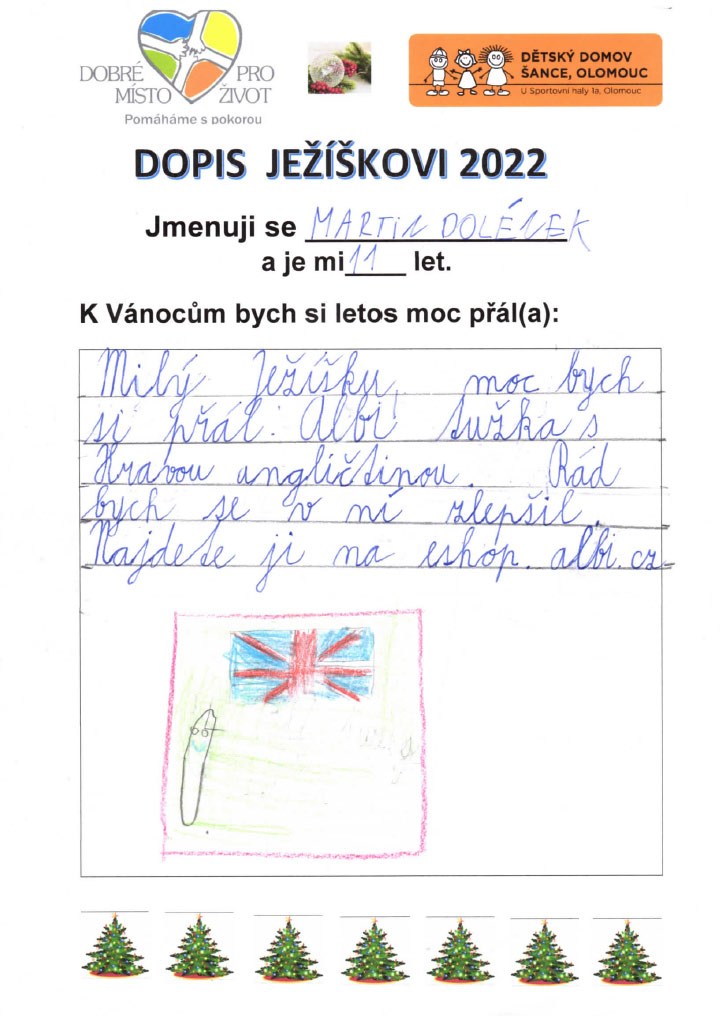 DOBRÉ PRO
MÍSTO ŽIVOT
Pomáháme s pokorou
DĚTSKÝ DOMOV
ŠANCE, OLOMOUC
U Sportovní haly 1a, Olomouc
DOPIS JEŽÍŠKOVI 2022
Jmenuji se MARTIN DOLÉNEK
a je mi 11 let.
K Vánocům bych si letos moc přál(a):
Milý Ježíšku, moc bych
si přál: Albi tužka s
Hravou angličtinou. Rád
bych se v ní zlepšil.
Najdete ji na eshop.albi.cz